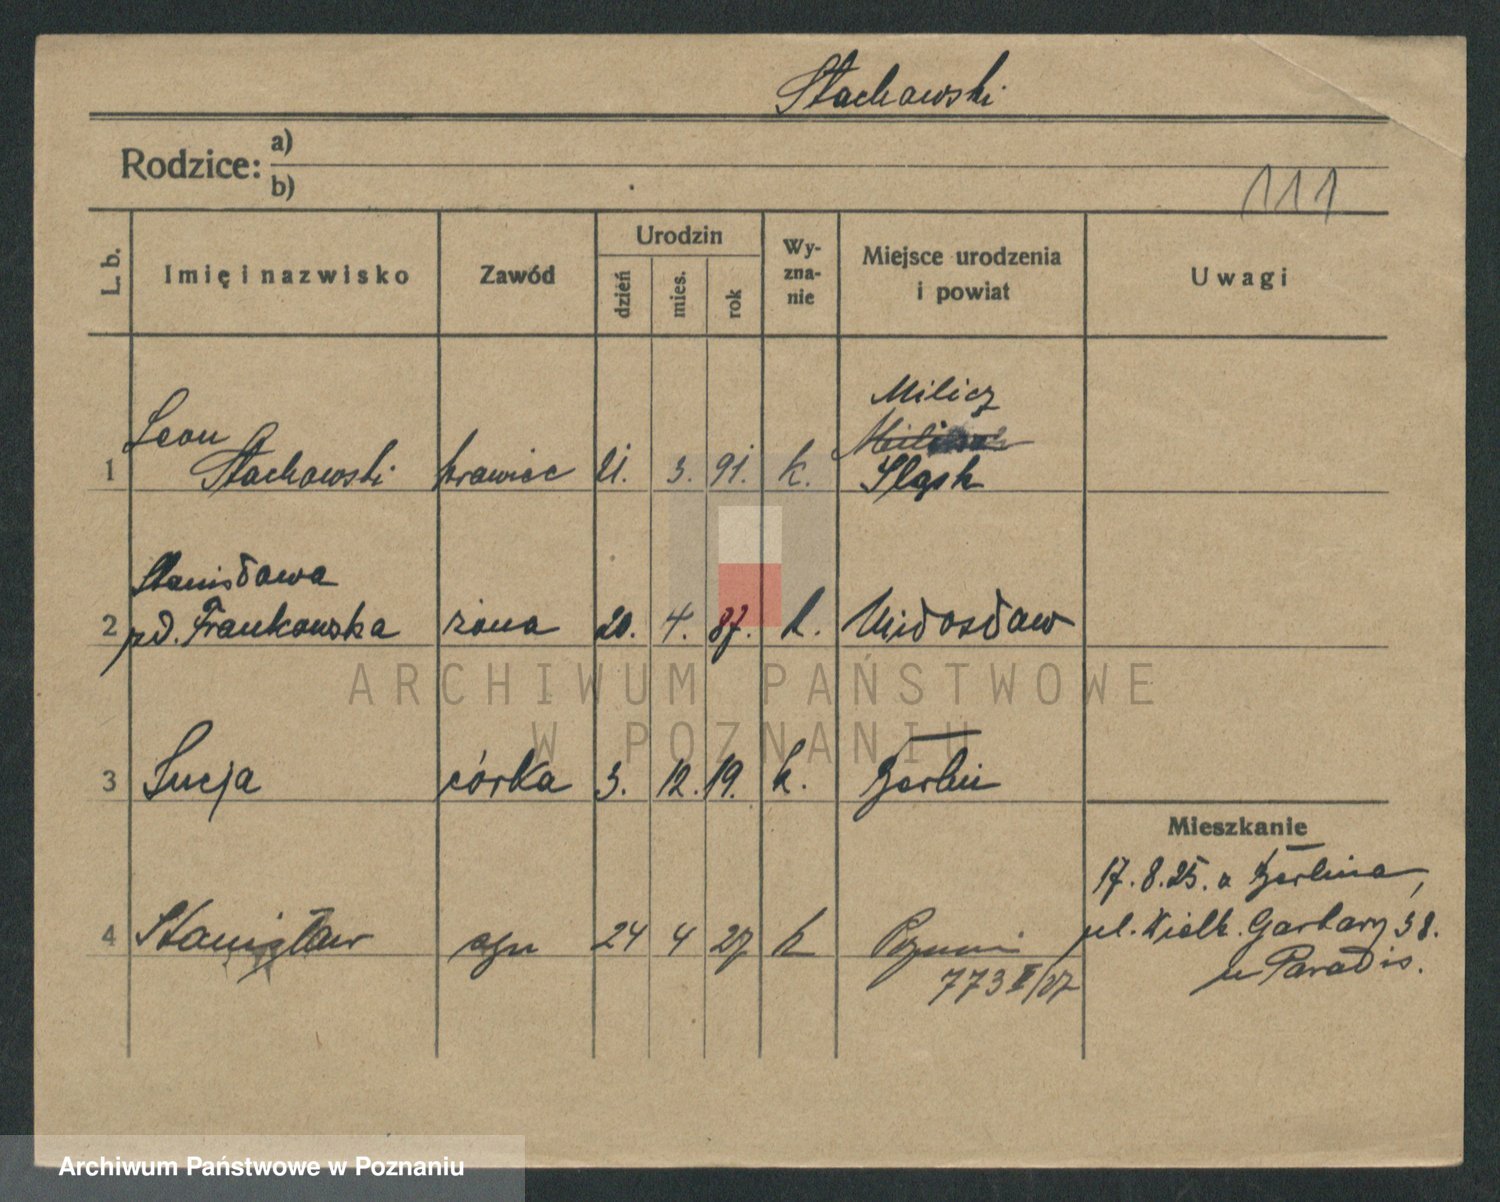 Stachowski
Rodzice: a)
b)
111
L. b. Imię i nazwisko Zawód Urodzin dzień mies. rok Wy-zna-nie Miejsce urodzenia i powiat Uwagi
Milicz
1 Leon Stachowski krawiec 21. 3. 91. k. Śląsk
Stanisława
2 pd. Frankowska żona 20. 4. 87. k. Miłosław
3 Łucja córka 3. 12. 19. k. Berlin
Mieszkanie
17.8.25. z Berlina,
4 Stanisław syn 24 4 27 k Poznań
ul. Wielk. Garbary 38.
773 II/27
u Paradis.
ARCHIWUM PAŃSTWOWE
W POZNANIU
Archiwum Państwowe w Poznaniu